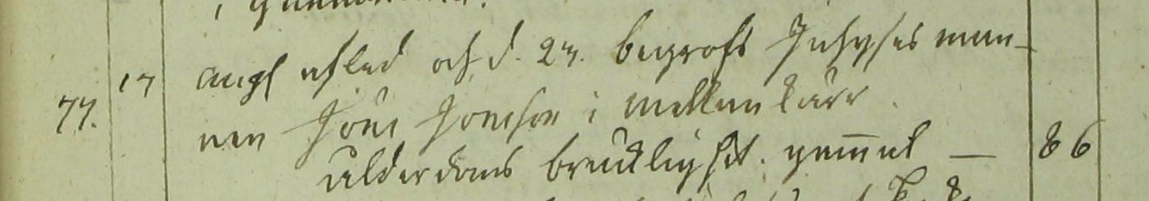 77. 17 augl afled och d. 23. begrofs Inhyses man-
nen Jöns Jonsson i Mellankärr.
ålderdoms bräcklighet. gammal — 86